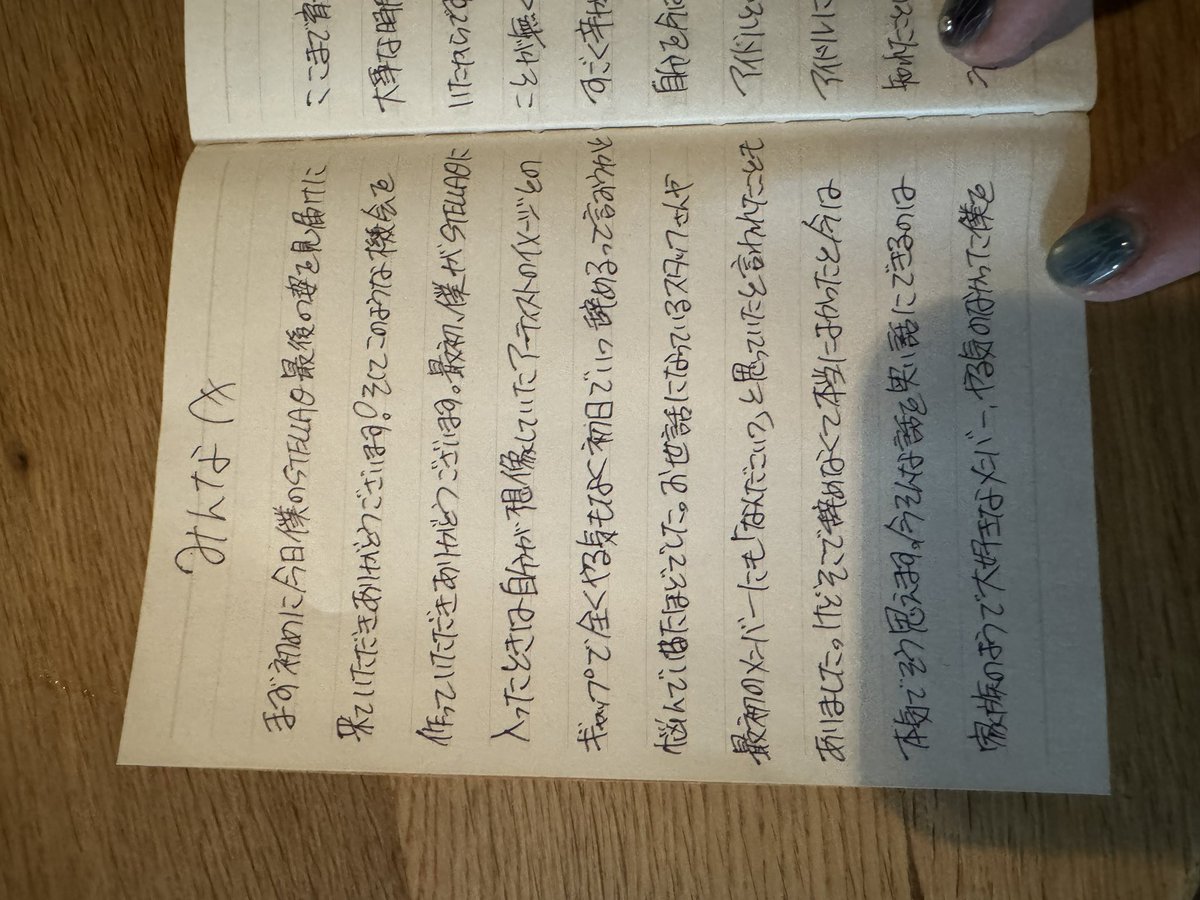 みんなへ
まず初めに今日僕のSTELLAの最後の姿を見届けに
来ていただきありがとうございます。そしてこのような機会を
作っていただきありがとうございます。最初、僕がSTELLAに
入ったときは自分が想像していたアーティストのイメージとの
ギャップで全くやる気もなく初日でいつ辞めるって言おうかと
悩んでいたほどでした。お世話になっているスタッフさんや
最初のメンバーにも「なんだこいつ」と思っていたと言われたことも
ありました。けどそこで辞めなくて本当によかったと今は
本気でそう思えます。今そんな話を笑い話にできるのは
家族のようで大好きなメンバー、やる気のなかった僕を
ここまで育
大事な時
いたからです
ことが無く
すごく辛か
自分を今
アイドルと
アイドルに